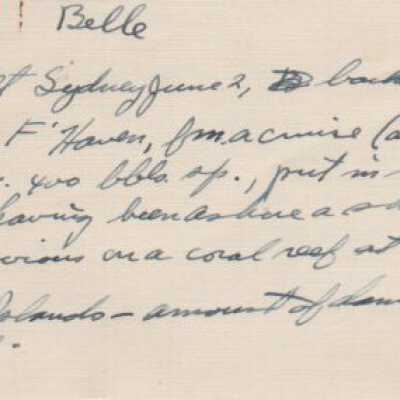 Belle
At Sydney June 2, back
F'Haven, fm. a cruise (a
400 bbls. sp., put in
having been ashore a sh
vious on a coral reef at
Islands - amount of dam